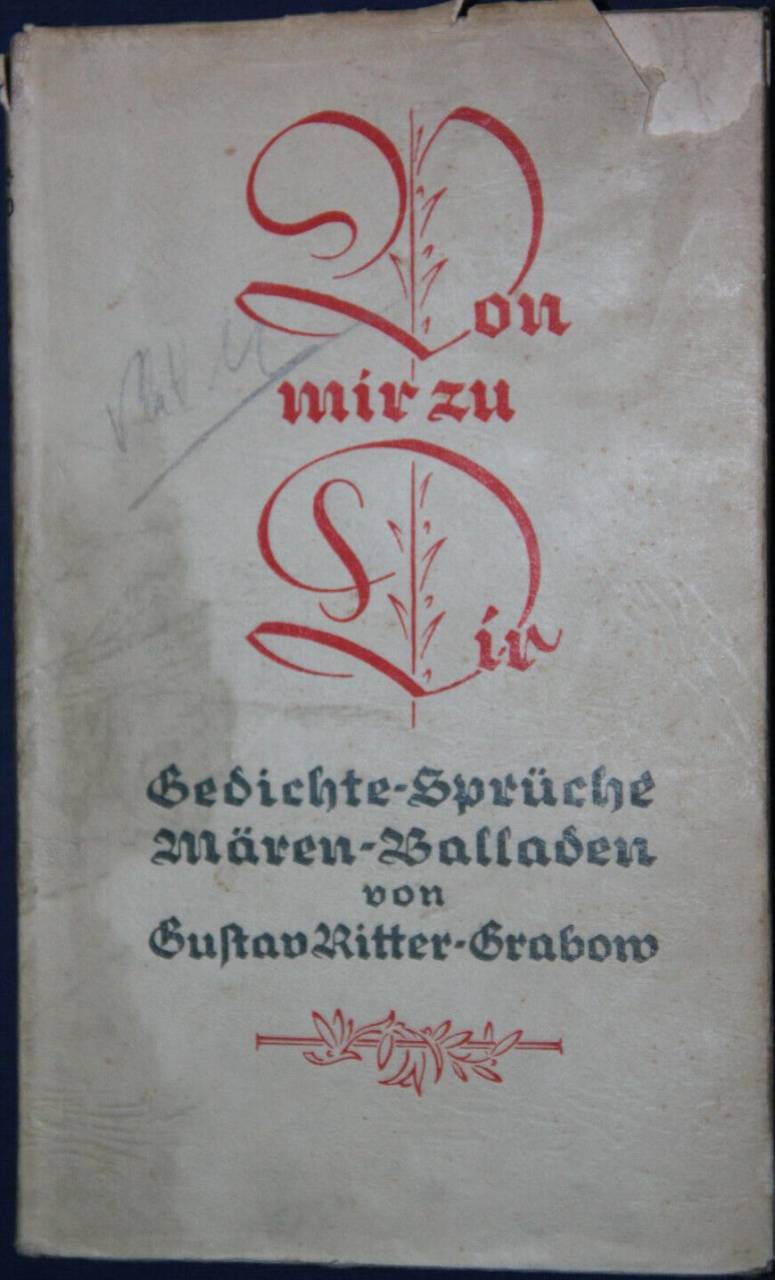 Von
mir zu
Dir
Gedichte-Sprüche
Mären-Balladen
von
Gustav Ritter-Grabow